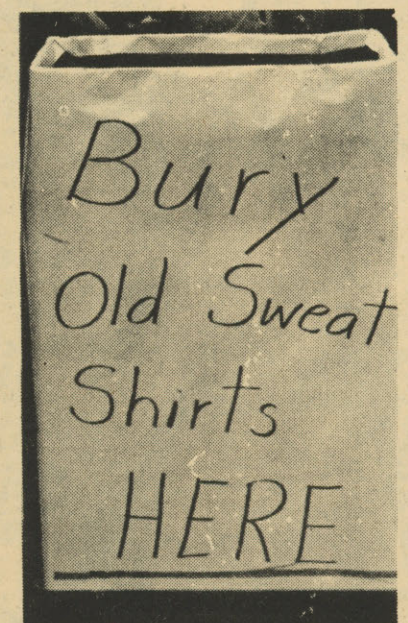 Bury
Old Sweat
Shirts
HERE